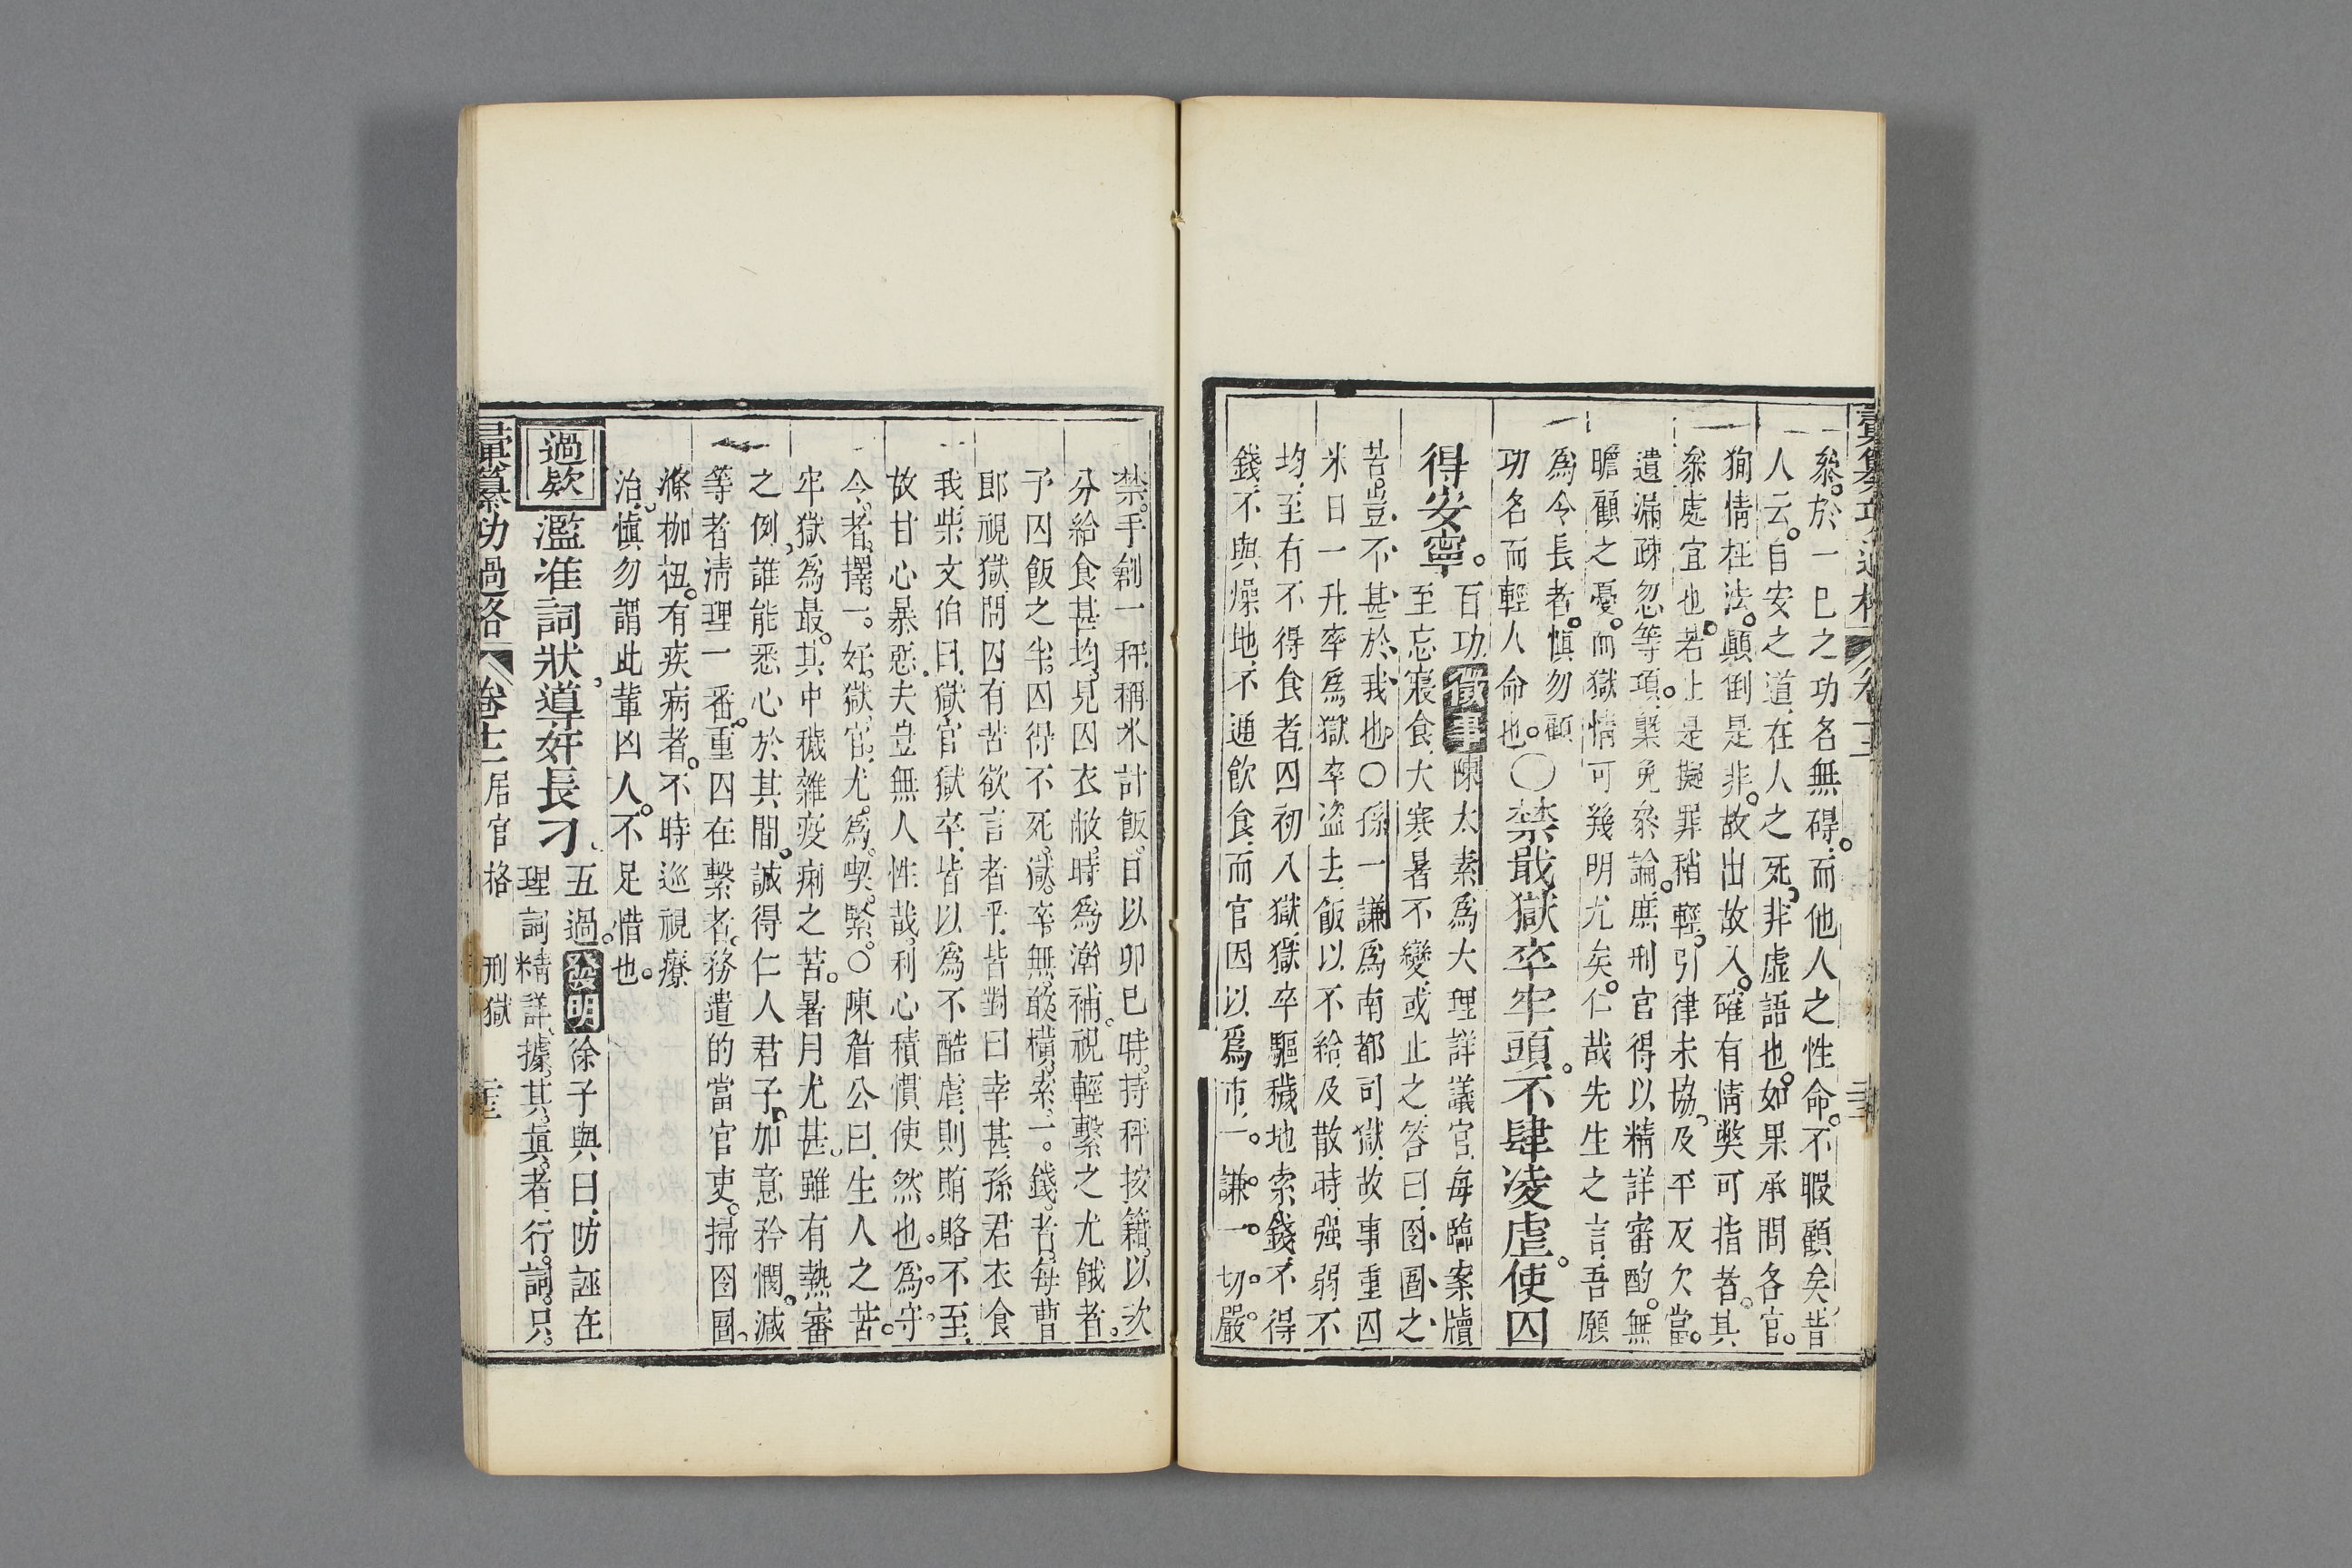 彙纂功過格 卷十二
叅於一已之功名無碍而他人之性命不暇顧矣昔
人云自安之道在人之死非虛語也如果承問各官
狥情枉法顛倒是非故出故入確有情獘可指者其
叅處宜也若止是擬罪稍輕引律未協及平反欠當
遺漏疎忽等項槩免叅論庶刑官得以精詳審酌無
瞻顧之憂而獄情可幾明允矣仁哉先生之言吾願
爲今長者慎勿顧
功名而輕人命也○禁戢獄卒牢頭不肆凌虐使囚
得安寧百功徵事陳太素爲大理詳議官每臨案牘
至忘寢食大寒暑不變或止之答曰囹圄之
苦豈不甚於我也○孫一謙爲南都司獄故事重囚
米日一升率爲獄卒盜去飯以不給及散時强弱不
均至有不得食者囚初入獄獄卒驅穢地索錢不得
錢不與燥地不通飲食而官因以爲市一謙一切嚴
禁手剏一秤稱米計飯日以卯巳時持秤按籍以次
分給食甚均見囚衣敝時爲澣補視輕繫之尤餓者
予囚飯之半囚得不死獄卒無敢橫索一錢者每曹
郎視獄問囚有苦欲言者乎皆對曰幸甚孫君衣食
我柴文伯曰獄官獄卒皆以爲不酷虐則賄賂不至
故甘心暴惡夫豈無人性哉利心積慣使然也爲守
令者擇一好獄官尤爲喫緊○陳眉公曰生人之苦
牢獄爲最其中穢雜疫痢之苦暑月尤甚雖有熱審
之例誰能悉心於其間誠得仁人君子加意矜憫減
等者淸理一番重囚在繫者務遣的當官吏掃囹圄
滌枷杻有疾病者不時巡視療
治慎勿謂此輩凶人不足惜也
過款
濫准詞狀導奸長刁五過發明徐子與曰防誣在
理詞精詳據其眞者行詞只
彙纂功過格 卷十二 居官格 刑獄